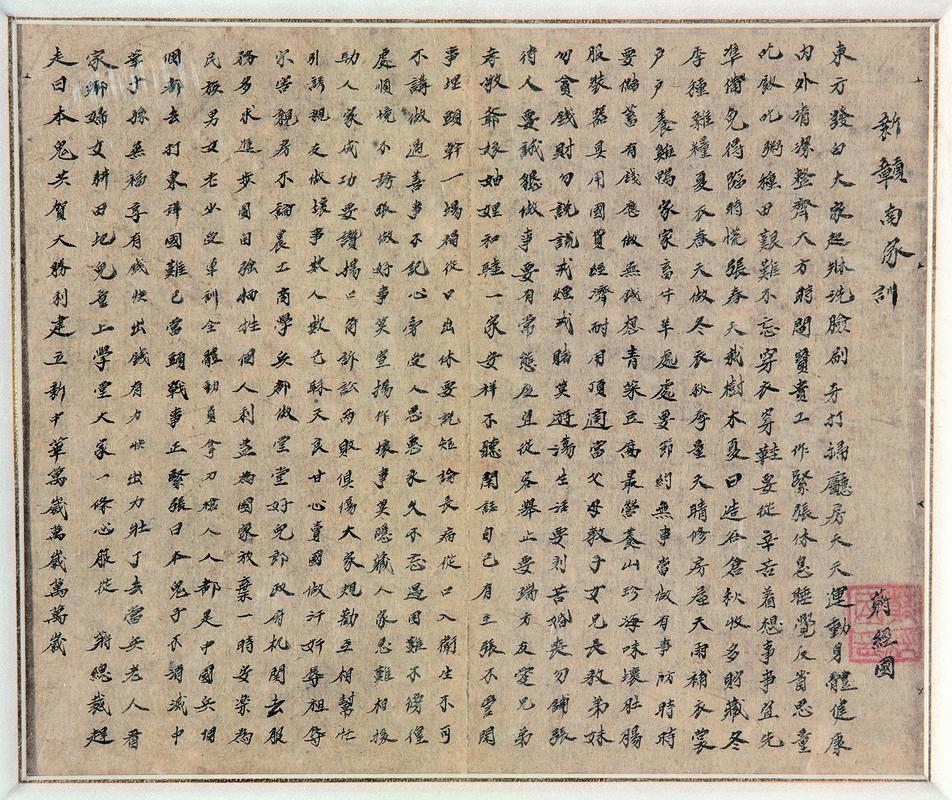 新贛南家訓
蔣經國
東方發白大家起牀洗臉刷牙打掃廳房天天運動身體健康
內外清潔整齊大方時間寶貴工作緊張休息睡覺反省思量
吃飯吃粥種田艱難不忘穿衣穿鞋要從辛苦着想事事宜先
準備免得臨時慌張春天栽樹木夏日造谷倉秋收多貯藏冬
季種雜糧夏衣春天做冬衣秋季量天晴修房屋天雨補衣裳
戶戶養雞鴨家家畜牛羊處處要節約無事當做有事防時時
要儲蓄有錢應做無錢想青菜豆腐最營養山珍海味壞肚腸
服裝器具用國貨經濟耐用頂適當父母教子女兄長教弟妹
勿貪錢財勿說謊戒煙戒賭莫遊蕩生活要刻苦婚喪勿鋪張
待人要誠懇做事要有常態度且從容舉止要端方友愛兄弟
孝敬爺娘妯娌和睦一家安祥不聽閒話自己有主張不管閒
事埋頭幹一場禍從口出休要說短論長病從口入衛生不可
不講做過善事不記心旁受人恩惠永久不忘過困難不徬徨
處順境不誇張做好事莫宣揚作壞事莫隱藏人家急難相援
助人家成功要讚揚口角訴訟兩敗俱傷大家規勸互相幫忙
引誘親友做壞事欺人欺己昧天良甘心賣國做汗奸辱祖辱
宗害親房不論農工商學兵都做堂堂好兒郎政府机關去服
務多求進步圖自強犧牲個人利益為國家放棄一時安樂為
民族男女老少受軍訓全體動員拿刀槍人人都是中國兵個
個都去打東洋國難已當頭戰事正緊張日本鬼子不消滅中
華子孫無福享有錢快出錢有力快出力壯丁去當兵老人看
家鄉婦女耕田地兒童上學堂大家一條心服從蔣總裁趕
走日本鬼共賀大勝利建立新中華萬歲萬歲萬萬歲